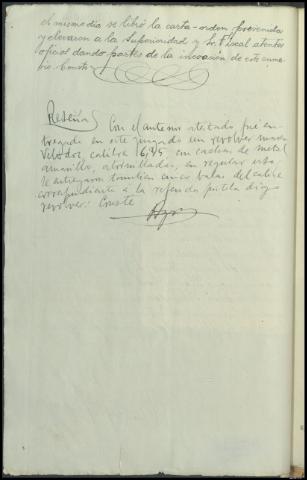 el mismo dia se libró la carta-orden prevenida
y elevaron a la Superioridad y Sr. Fiscal atentos
oficios dando partes de la incoación de este suma-
rio. Consta
Reseña Con el anterior atestado fué en-
tregado en este Juzgado un revolver marca
Velodos, calibre 6,35, con cachas de metal
amarillo, atornilladas, en regular estado.
Se entregaron tambien cinco balas del calibre
correspondiente a la referida pistola digo
revolver: Conste